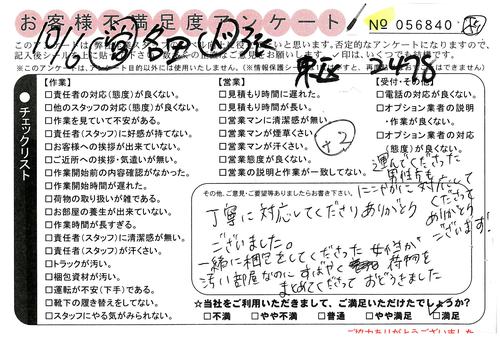 お客様不満足度アンケート!
№ 056840
10/13
東証 2478
【作業】
□責任者の対応(態度)が良くない。
□他のスタッフの対応(態度)が良くない。
□作業を見ていて不安がある。
□責任者(スタッフ)に好感が持てない。
□お客様への挨拶が出来ていない。
□ご近所への挨拶・気遣いが無い。
□作業開始前の内容確認がなかった。
□作業開始時間が遅れた。
□荷物の取り扱いが雑である。
□お部屋の養生が出来ていない。
□作業時間が長すぎる。
□責任者(スタッフ)に清潔感が無い。
□責任者(スタッフ)が汗くさい。
□トラックが汚い。
□梱包資材が汚い。
□運転が不安(下手)である。
□靴下の履き替えをしてない。
□スタッフにやる気がみられない。
●チェックリスト
【営業】
□見積もり時間に遅れた。
□見積もり時間が長い。
□営業マンに清潔感が無い
□営業マンが煙草くさい
□営業マンが汗くさい。
□営業態度が良くない。
□営業の説明と作業が一致してない。
+2
【受付・その他】
□電話の対応が良くない。
□オプション業者の説明
・作業が良くない。
□オプション業者の対応
(態度)が良くない。
その他、ご意見・ご要望等ありましたらお書き下さい。
運んでくださった
男性方も
にこやかに対応して
くださって
ありがとう
ございます!
丁寧に対応してくださりありがとう
ございました。
一緒に梱包をしてくださった女性が
汚い部屋なのにすばやく荷物を
まとめてくださっておどろきました
☆当社をご利用いただきまして、ご満足いただけたでしょうか?
□不満 □やや不満 □普通 □やや満足 □満足
ご協力ありがとうございました